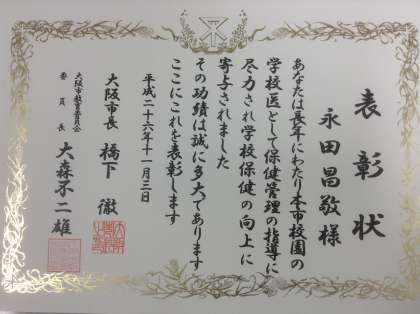 表彰状
永田昌敬様
あなたは長年にわたり本市校園の
学校医として保健管理の指導に
尽力され学校保健の向上に
寄与されました
その功績は誠に多大であります
ここにこれを表彰します
平成二十六年十一月三日
大阪市長 橋下徹
大阪市教育委員会
委員長 大森不二雄